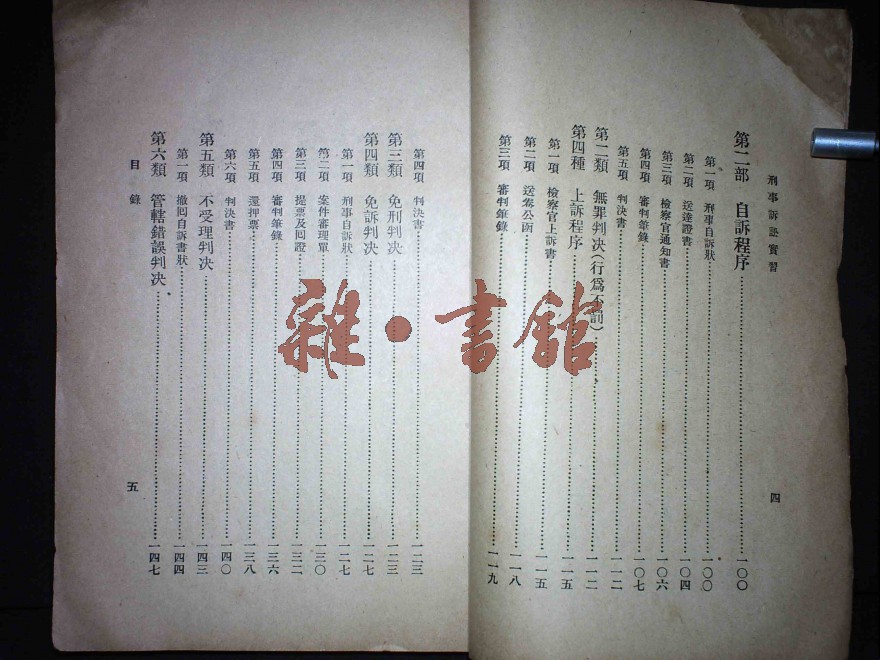 刑事訴訟實習
四
第二部 自訴程序……一〇〇
第一項 刑事自訴狀……一〇〇
第二項 送達證書……一〇四
第三項 檢察官通知書……一〇六
第四項 審判筆錄……一〇七
第五項 判決書……一一二
第二類 無罪判決(行爲不罰)……一一二
第四種 上訴程序……一一五
第一項 檢察官上訴書……一一五
第二項 送卷公函……一一八
第三項 審判筆錄……一一九
第四項 判決書……一二三
第三類 免刑判決……一二三
第四類 免訴判決……一二七
第一項 刑事自訴狀……一二七
第二項 案件審理單……一三〇
第三項 提票及回證……一三二
第四項 審判筆錄……一三六
第五項 還押票……一三八
第六項 判決書……一四〇
第五類 不受理判決……一四三
第一項 撤回自訴書狀……一四四
第六類 管轄錯誤判決……一四七
目錄
五
雜·書館